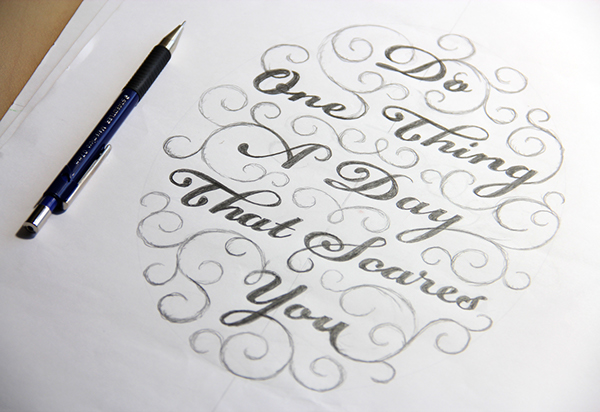 Do
One Thing
A Day
That Scares
You